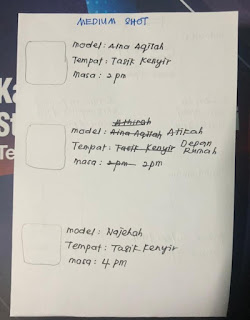 MEDIUM SHOT
model: Aina Aqilah
Tempat: Tasik Kenyir
masa: 2 pm
Athirah
model: Aina Aqilah Atikah
Tempat: Tasik Kenyir Depan Rumah
masa: 2pm 2pm
model: Najehah
Tempat: Tasik Kenyir
masa: 4 pm
Ka
St
Te